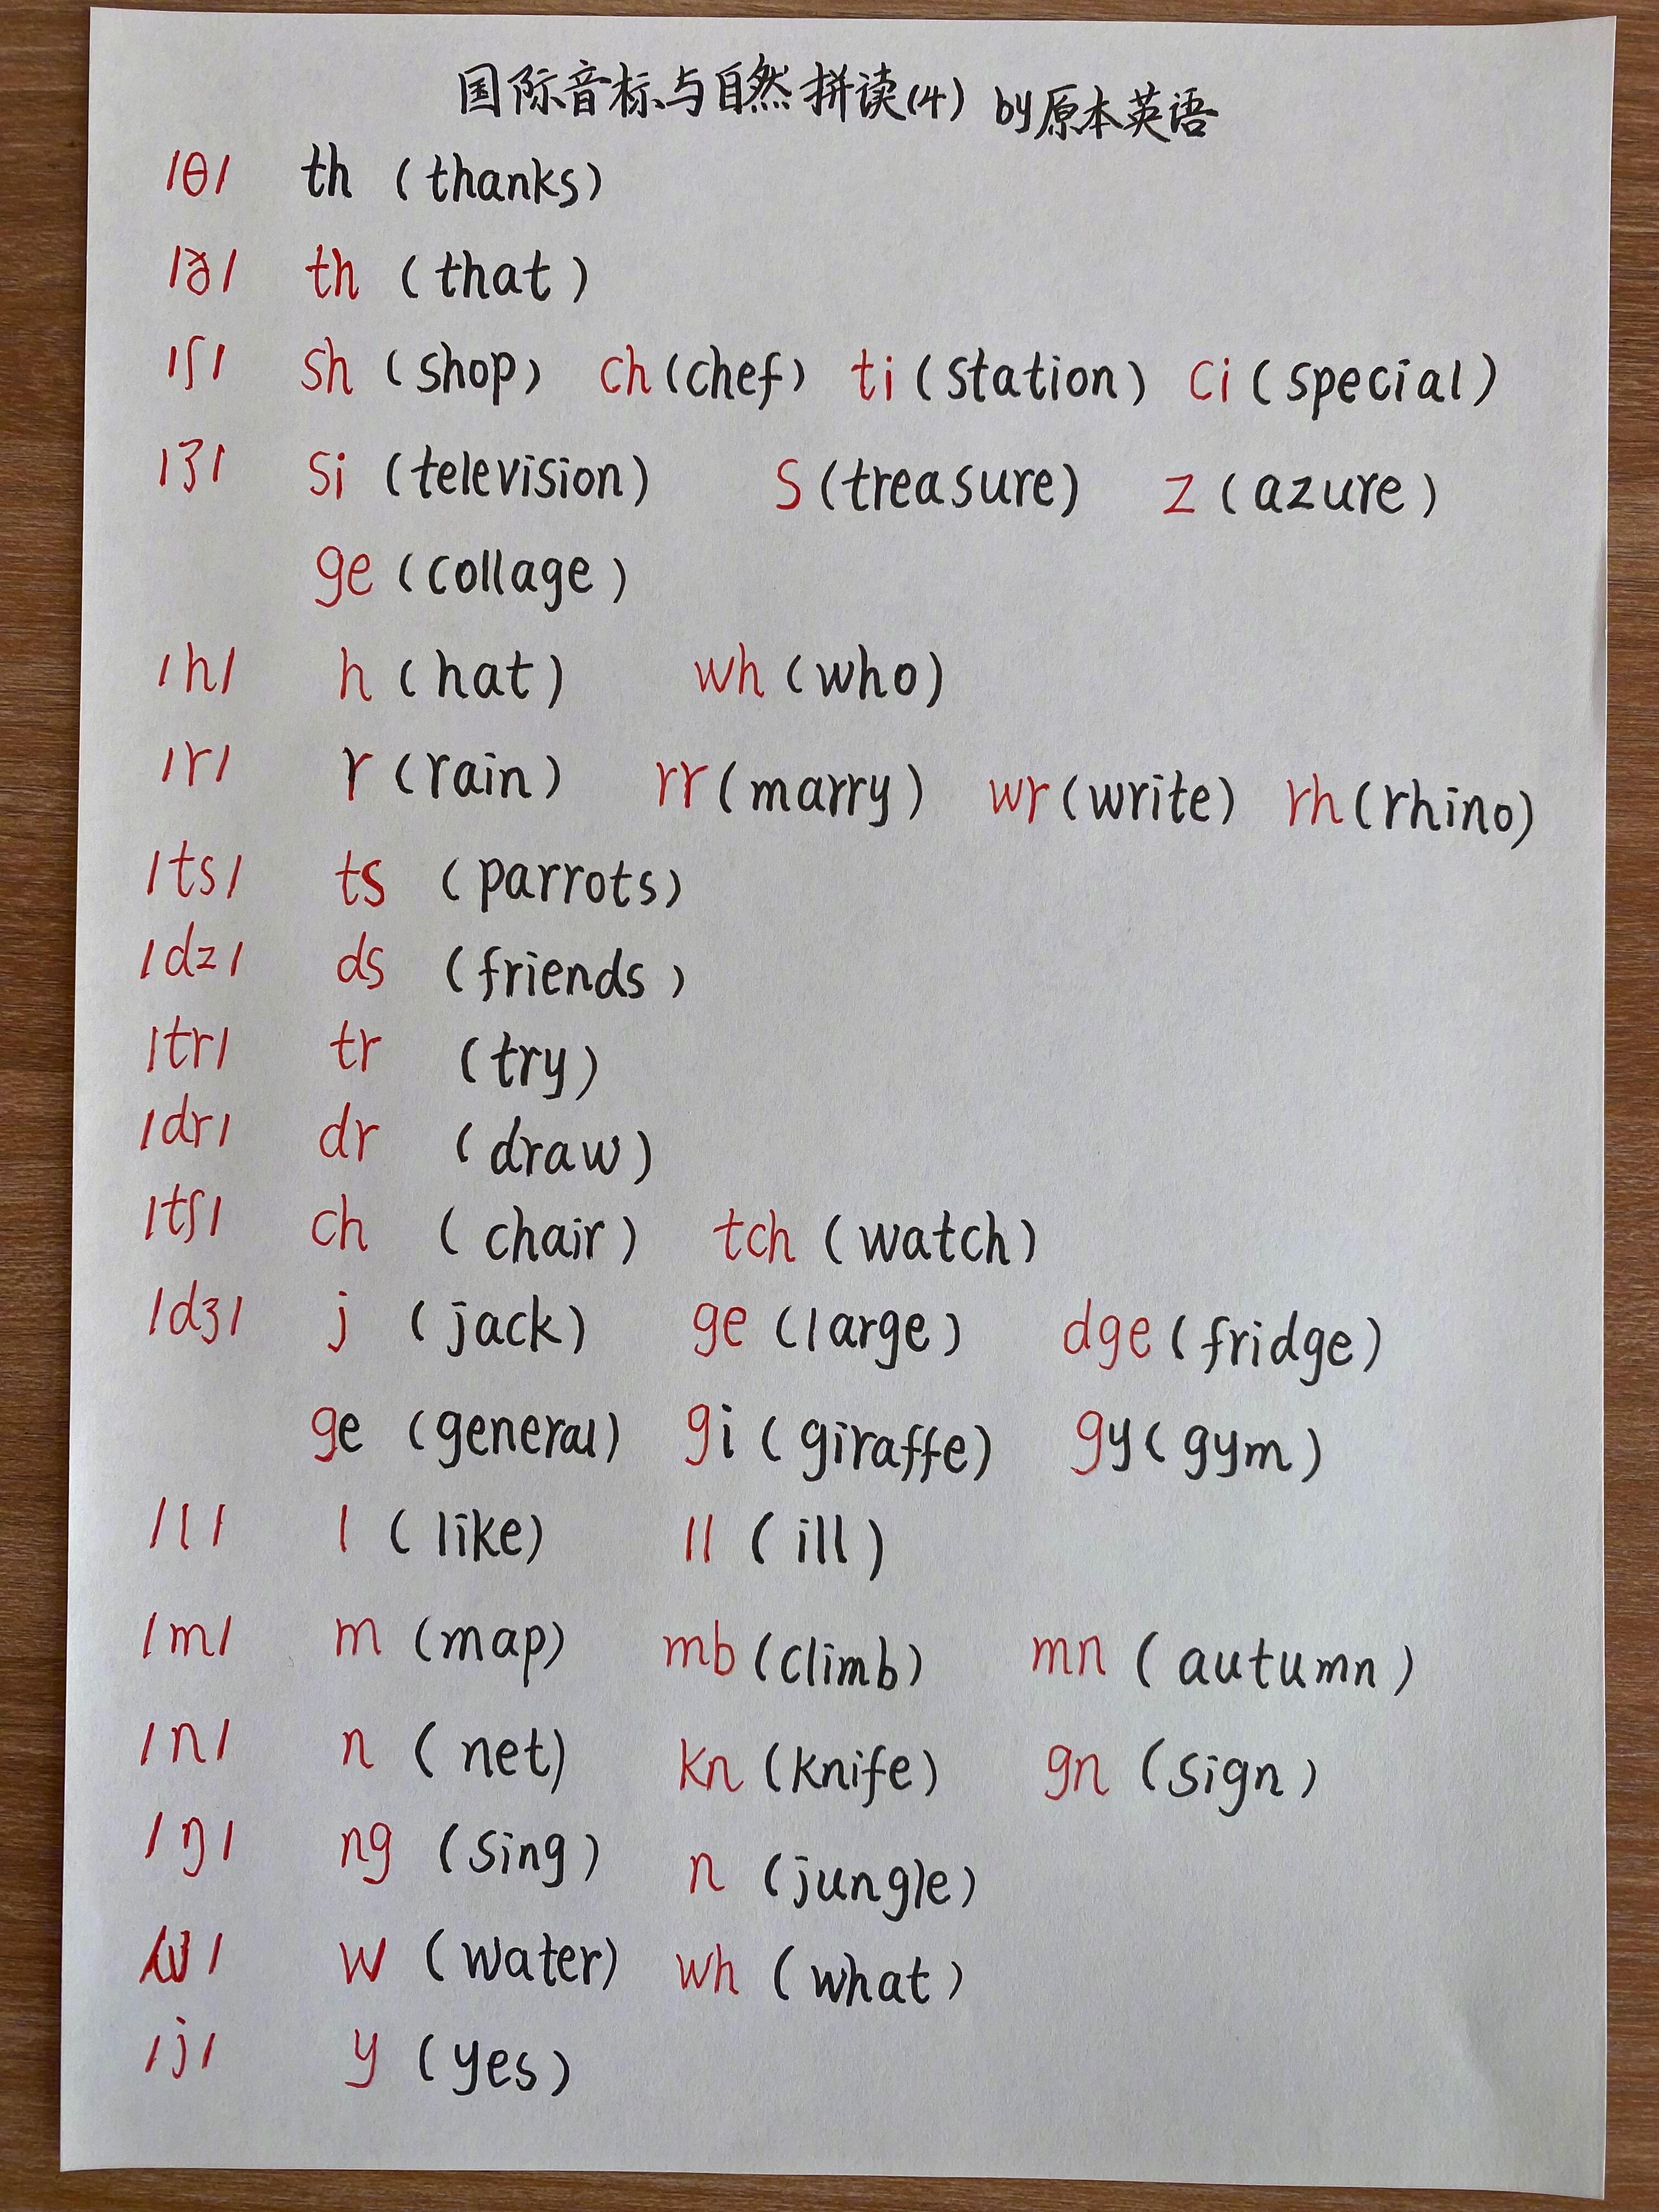 国际音标与自然拼读(4) by原本英语
/θ/ th (thanks)
/ð/ th (that)
/ʃ/ sh (shop) ch (chef) ti (station) ci (special)
/ʒ/ si (television) s (treasure) z (azure)
ge (collage)
/h/ h (hat) wh (who)
/r/ r (rain) rr (marry) wr (write) rh (rhino)
/ts/ ts (parrots)
/dz/ ds (friends)
/tr/ tr (try)
/dr/ dr (draw)
/tʃ/ ch (chair) tch (watch)
/dʒ/ j (jack) ge (large) dge (fridge)
ge (general) gi (giraffe) gy (gym)
/l/ l (like) ll (ill)
/m/ m (map) mb (climb) mn (autumn)
/n/ n (net) kn (knife) gn (sign)
/ŋ/ ng (sing) n (jungle)
/w/ w (water) wh (what)
/j/ y (yes)